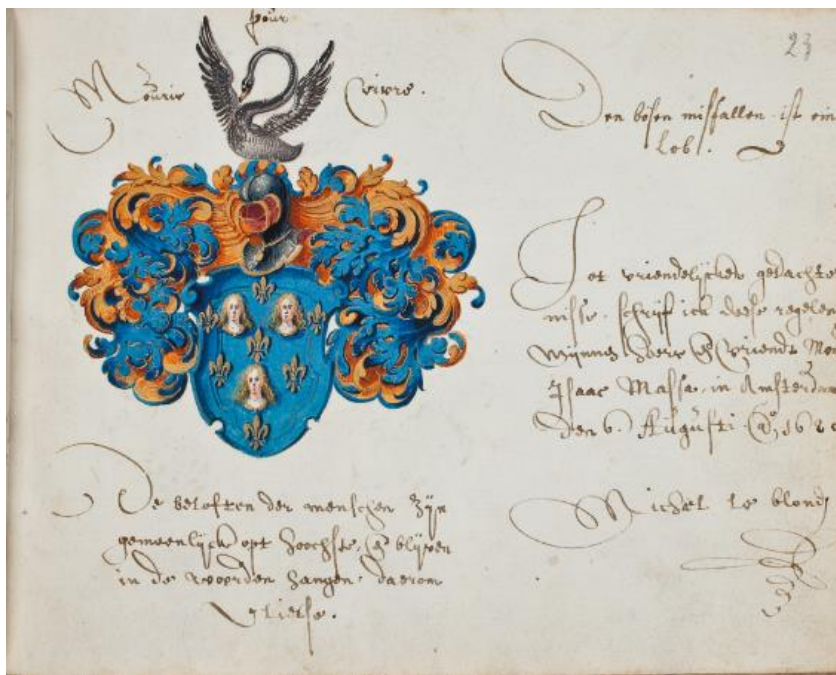 pour
Mourir vivre.
23
Den bösen missfallen ist ein
lob.
Tot vriendelijcker gedachte
nisse, schrijf ick deese regelen
mijnnen heere en vriendt
Isaac Massa. in Amsterdam
den 6. Augusti. Ao,
Michel le blond
De beloften der menschen zijn
gemeenlijck opt hoochste, en blijven
in de woorden hangen. daerom